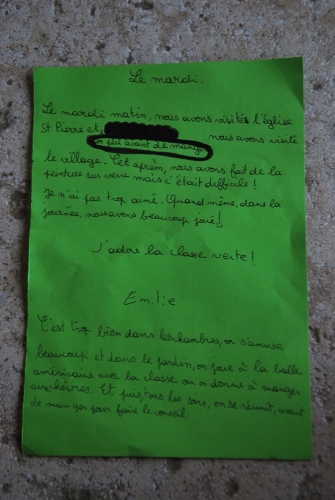 Le mardi.
Le mardi matin, nous avons visités l'église
St Pierre et, nous avons visité
un peu avant de manger
le village. Cet aprèm, nous avons fait de la
peinture sur verre mais c'était difficile !
Je n'ai pas trop aimé. Quand même, dans la
journée, nous avons beaucoup joué !
J'adore la classe verte !
Emilie
C'est trop bien dans les chambres, on s'amuse
beaucoup et dans le jardin, on joue à la balle
américaine avec la classe ou on donne à manger
aux chèvres. Et puis, tous les soirs, on se réunit, avant
de manger pour faire le conseil